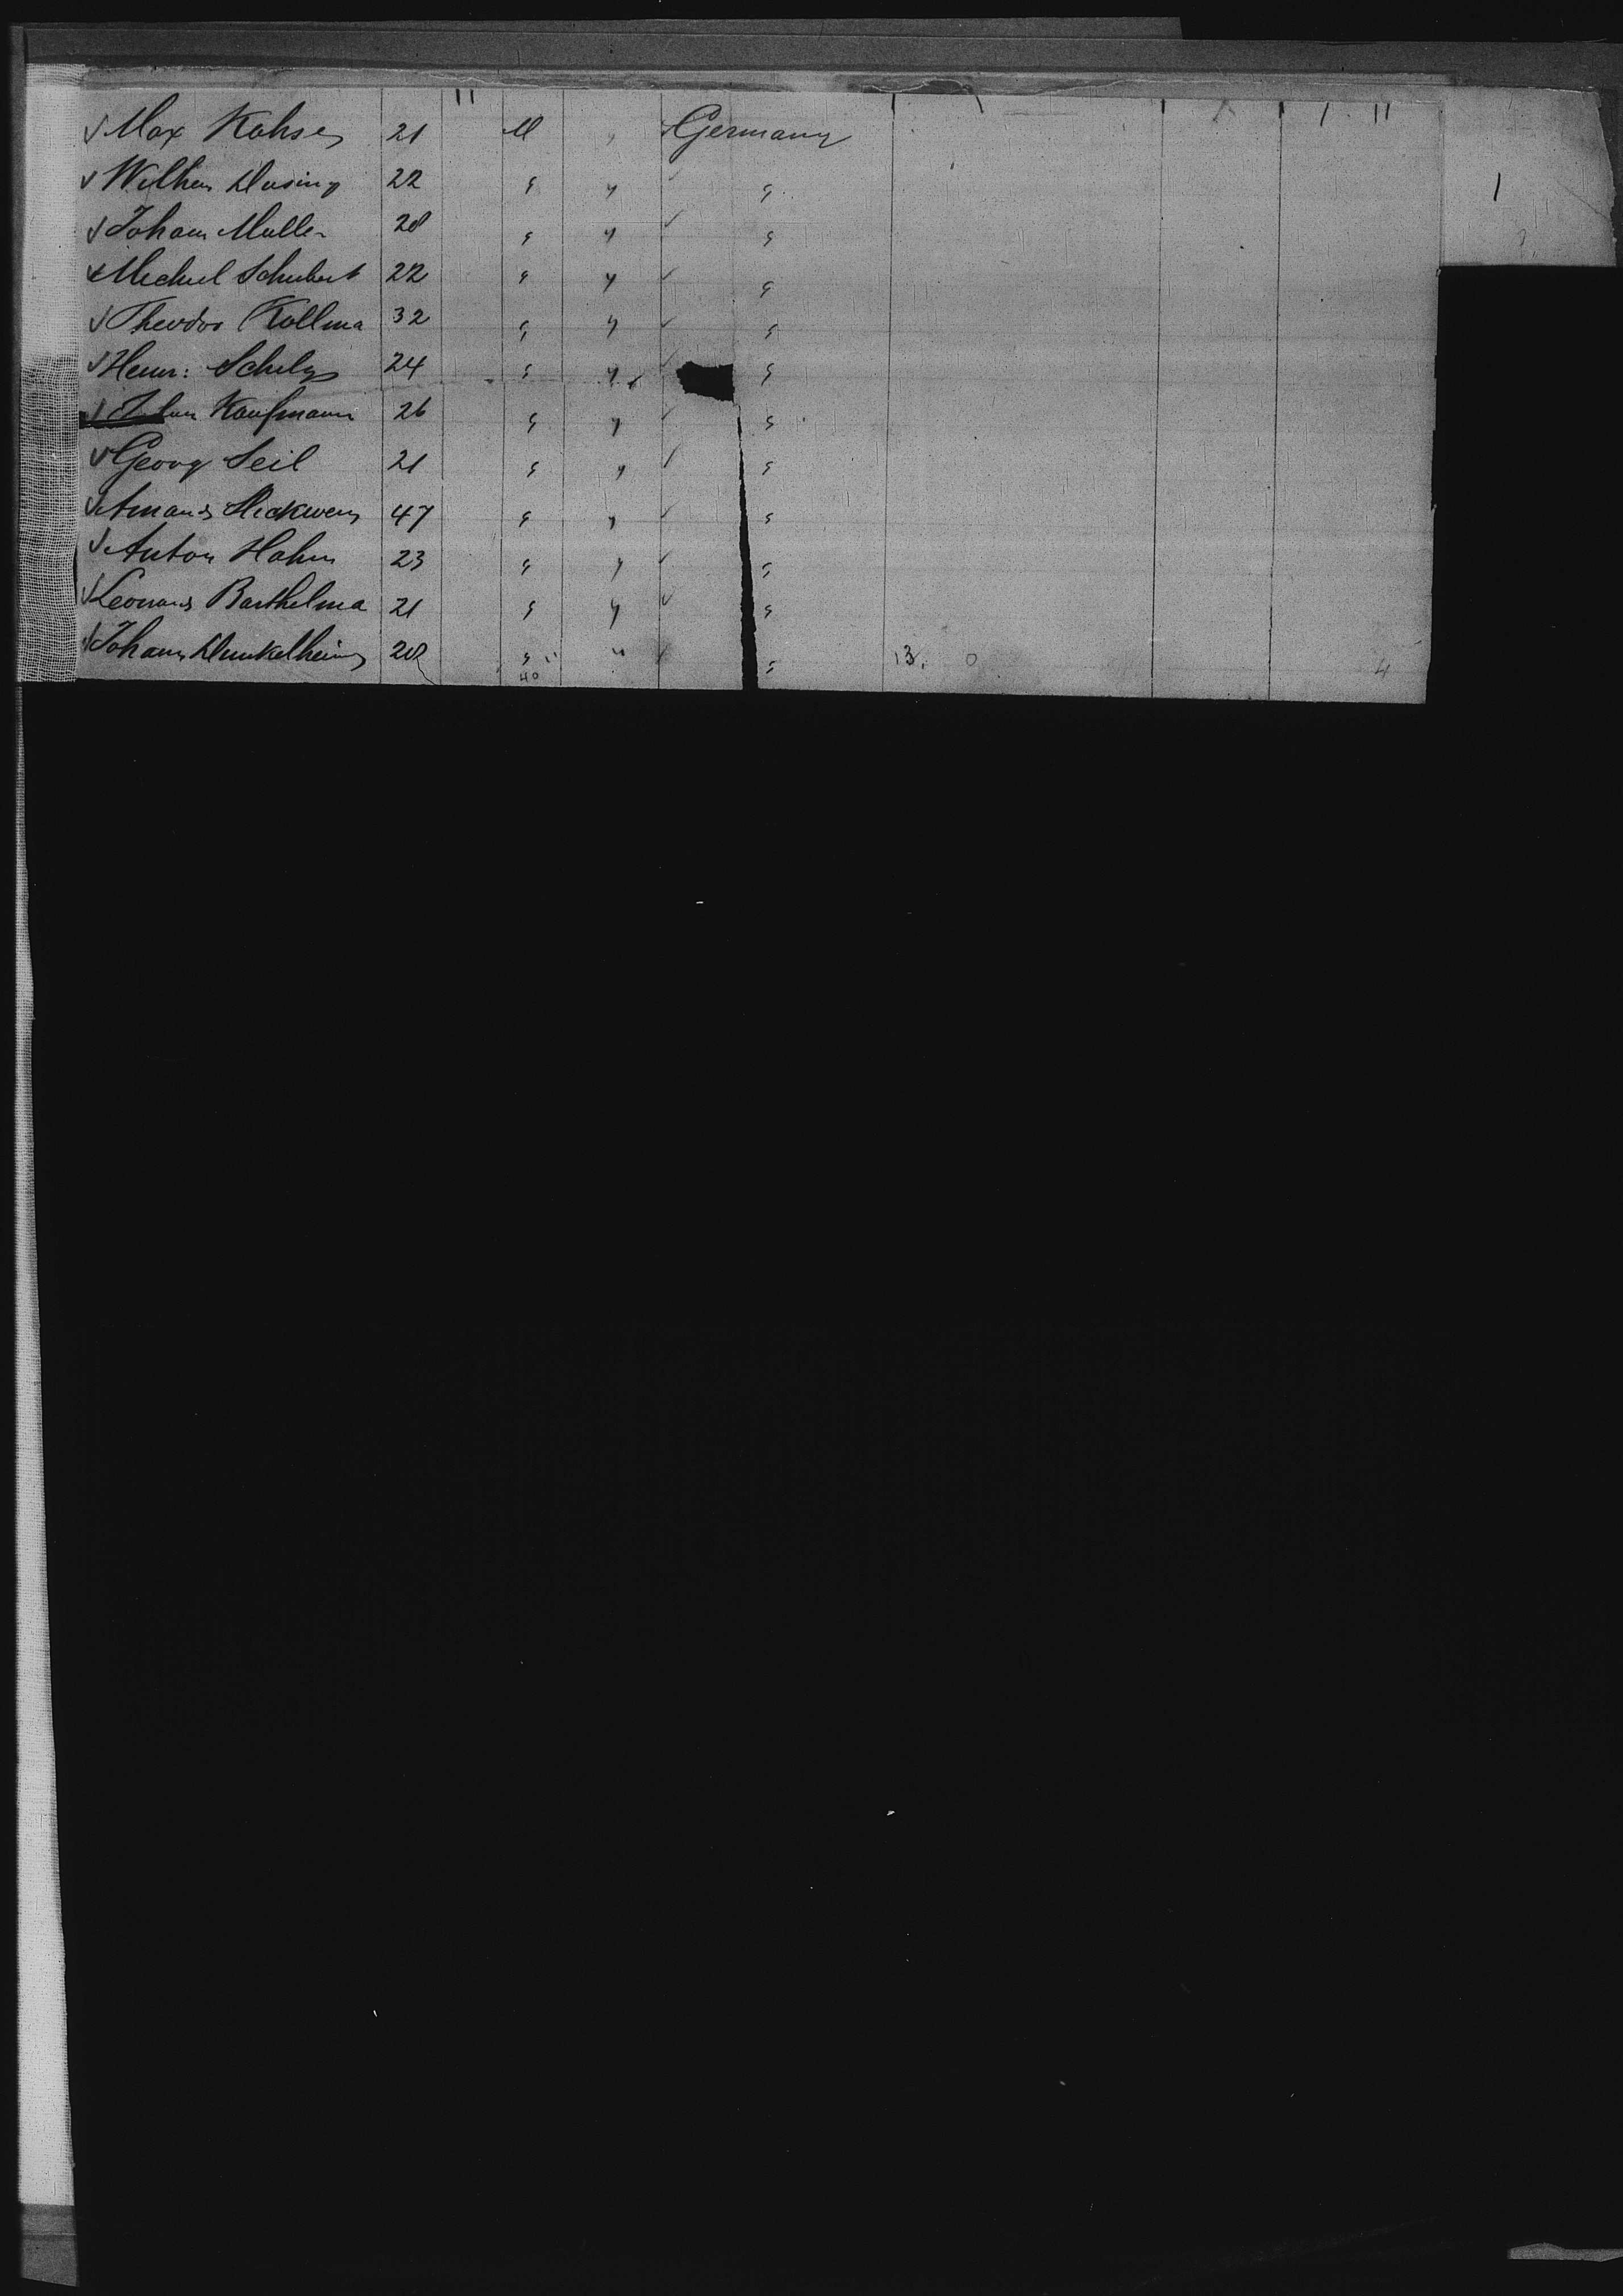 ✓ Max Kahse 21 M " Germany
✓ Wilhem Dusing 22 " " ✓ "
✓ Johann Muller 28 " " ✓ "
✓ Michael Schubert 22 " " ✓ "
✓ Theodor Kollma 32 " " ✓ "
✓ Heinr: Schulz 24 " " ✓ "
✓ Kaufmann 26 " " ✓ "
✓ Georg Seil 21 " " ✓ "
✓ Amand 47 " " ✓ "
✓ Anton Hahn 23 " " ✓ "
✓ Leonard Barthelma 21 " " ✓ "
✓ Johann Dunkelheim 28 " " ✓ " 13. 0 4
40